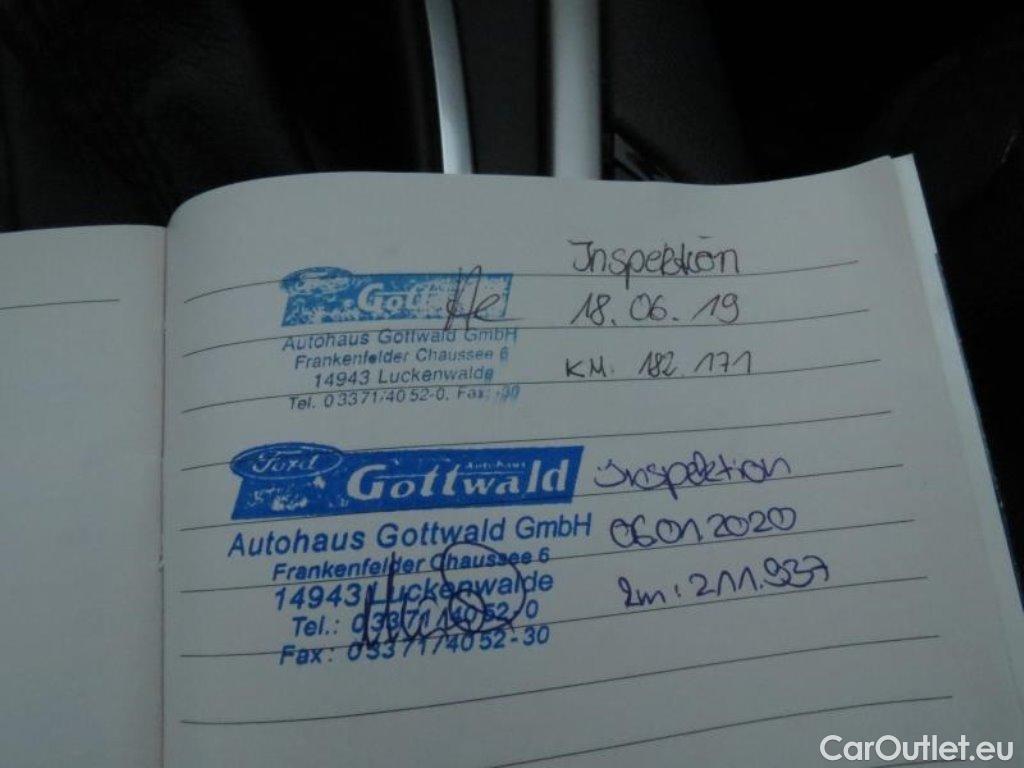 Ford
Gott
Autohaus Gottwald GmbH
Frankenfelder Chaussee 6
14943 Luckenwalde
Tel. 03371/4052-0, Fax: -30
Inspektion
18.06.19
KM: 182.171
Ford
Autohaus
Gottwald
Autohaus Gottwald GmbH
Frankenfelder Chaussee 6
14943 Luckenwalde
Tel.: 03371/4052-0
Fax: 03371/4052-30
Inspektion
06.01.2020
km: 211.937
CarOutlet.eu